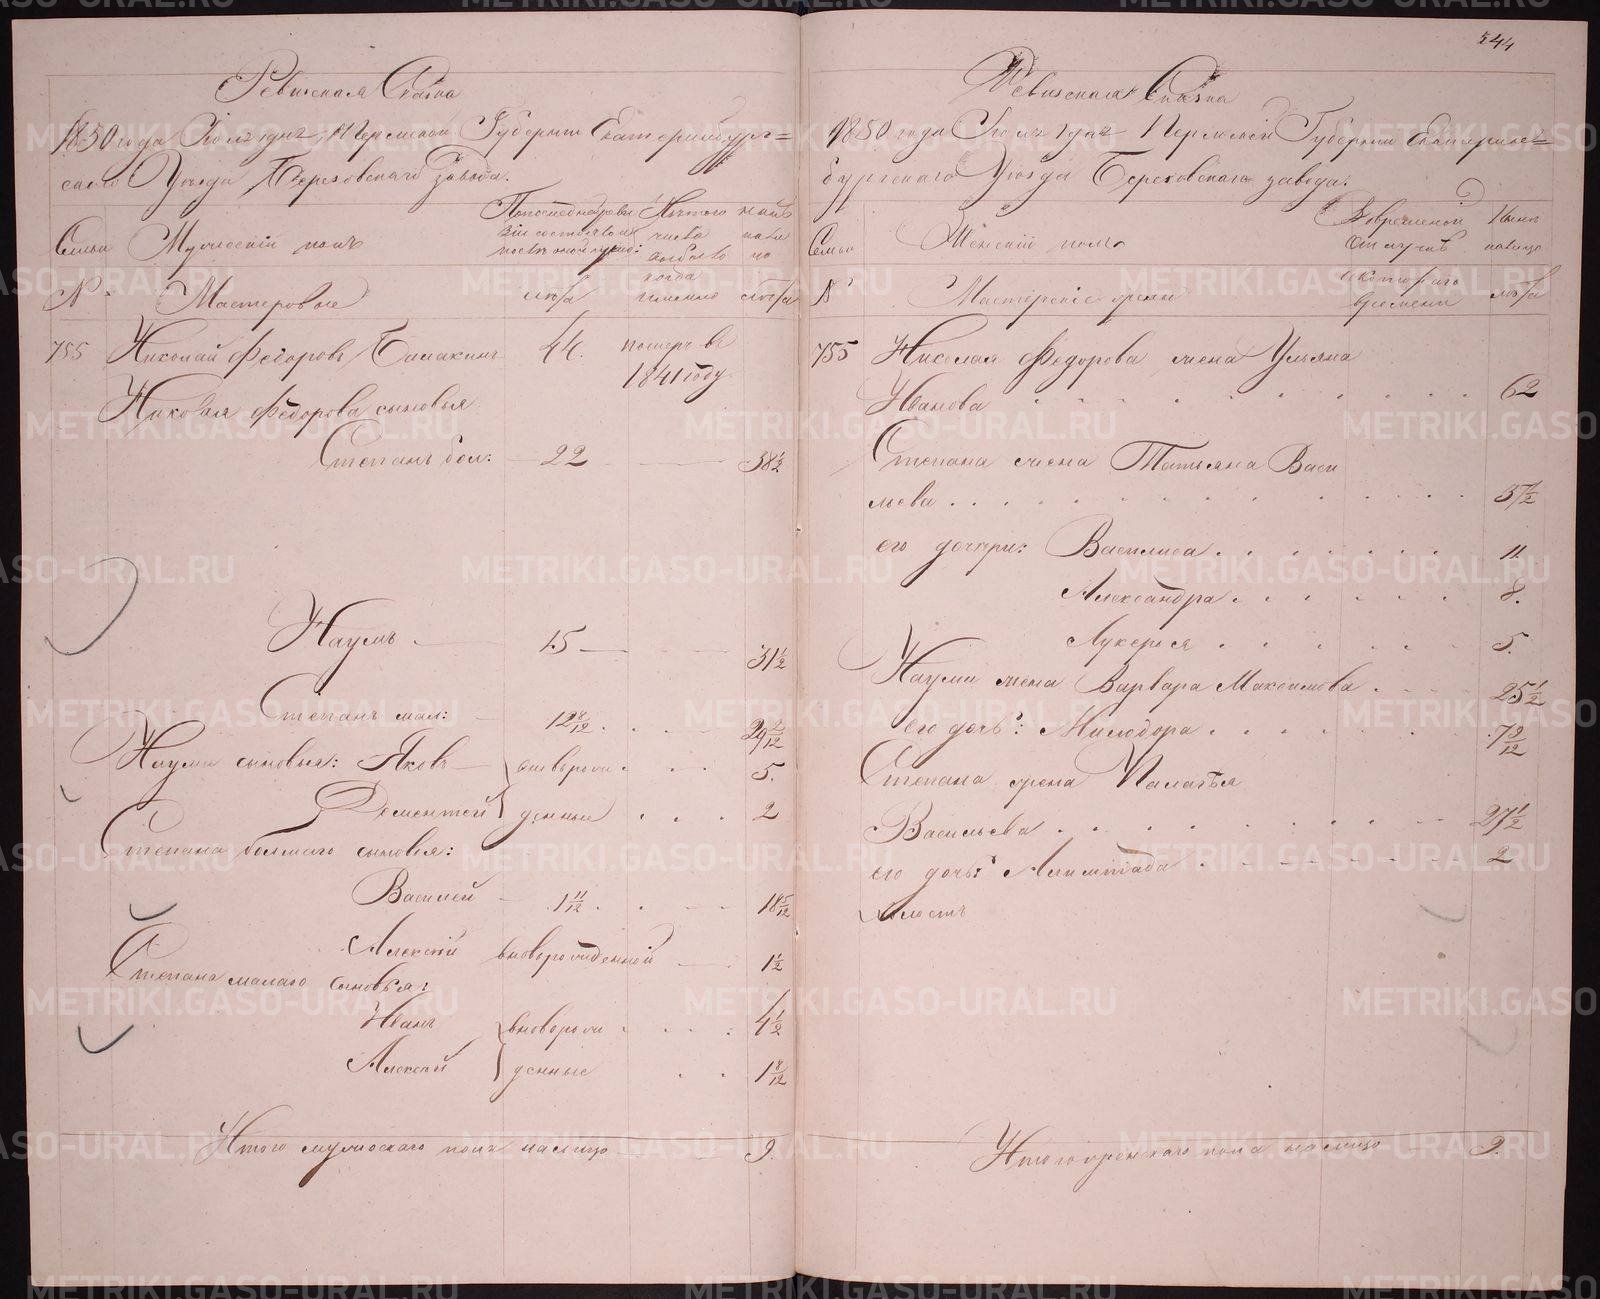 344
Ревизская Сказка
1850 года Iюля 1 дня Пермской Губернiи Екатеринбург=
скаго Уезда Березовскаго завода.
Семьи
Мужескiй полъ
По последней реви
зiи состояло и
после оной прибы:
Изъ того
числа
выбыло
когда
именно
Ныне
на ли
цо
№
Мастеровые
лета
лета
755
Николай Федоровъ Балакинъ
44.
померъ въ
1841 году
Николая Федорова сыновья
Степанъ бол:
22
38 1/2
Наумъ
15
31 1/2
Степанъ мал:
12 8/12
29 2/12
Наума сыновья: Яковъ
вновьрож
5.
Дементей
денные
2
Степана большаго сыновья:
Василей
1 11/12
18 5/12
Алексей
вноворожденной
1 1/2
Степана малаго сыновья:
Иванъ
вноворож
4 1/2
Алексей
денные
1 8/12
Итого мужескаго пола налицо
9.
Ревизская Сказка
1850 года Iюля 1 дня Пермской Губернiи Екатерин=
бургскаго Уезда Березовскаго завода.
Семьи
Женскiй полъ
Во временной
отлучке
Ныне
налицо
№
Мастерскiе жены
с котораго
времени
лета
755
Николая Федорова жена Ульяна
Иванова
62
Степана жена Татьяна Васи
льева
37 1/2
его дочери: Василиса
11.
Александра
8.
Лукерья
5.
Наума жена Варвара Максимова
25 1/2
его дочь: Милодора
7 9/12
Степана жена Палагья
Васильева
27 1/2
его дочь:
2
Итого женскаго пола налицо
9.
METRIKI.GASO-URAL.RU